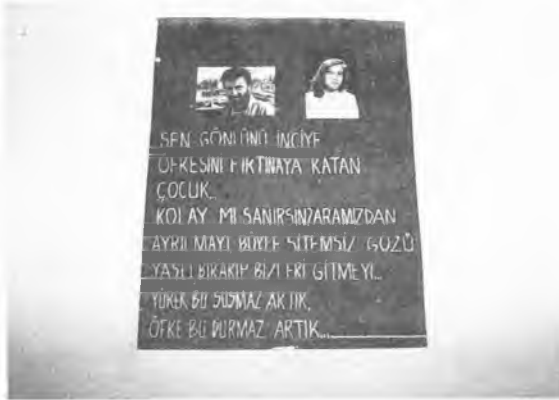 SEN GÖNLÜNÜ İNCİYE
ÖFKESİNİ FIRTINAYA KATAN
ÇOCUK..
KOLAY MI SANIRSIN ARAMIZDAN
AYRILMAYI BÖYLE SİTEMSİZ GÖZÜ
YAŞLI BIRAKIP BİZLERİ GİTMEYİ..
YÜREK BU SUSMAZ ARTIK.
ÖFKE BU DURMAZ ARTIK...